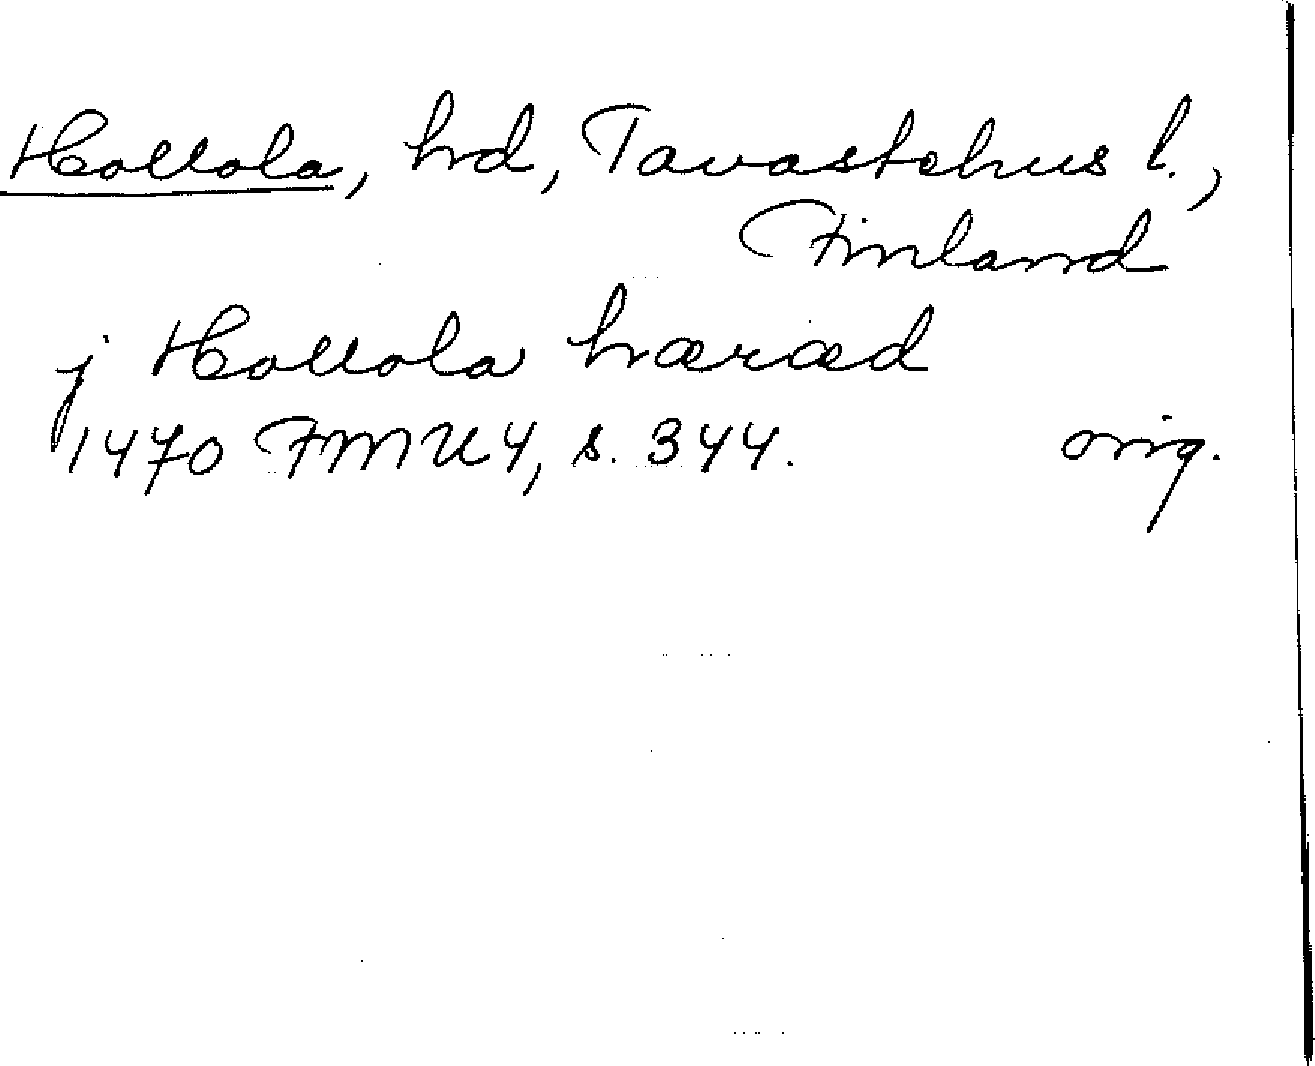 Hollola, hd, Tavastehus l.,
Finland
j Hollola hæræd
1470 FMU 4, s. 344. orig.